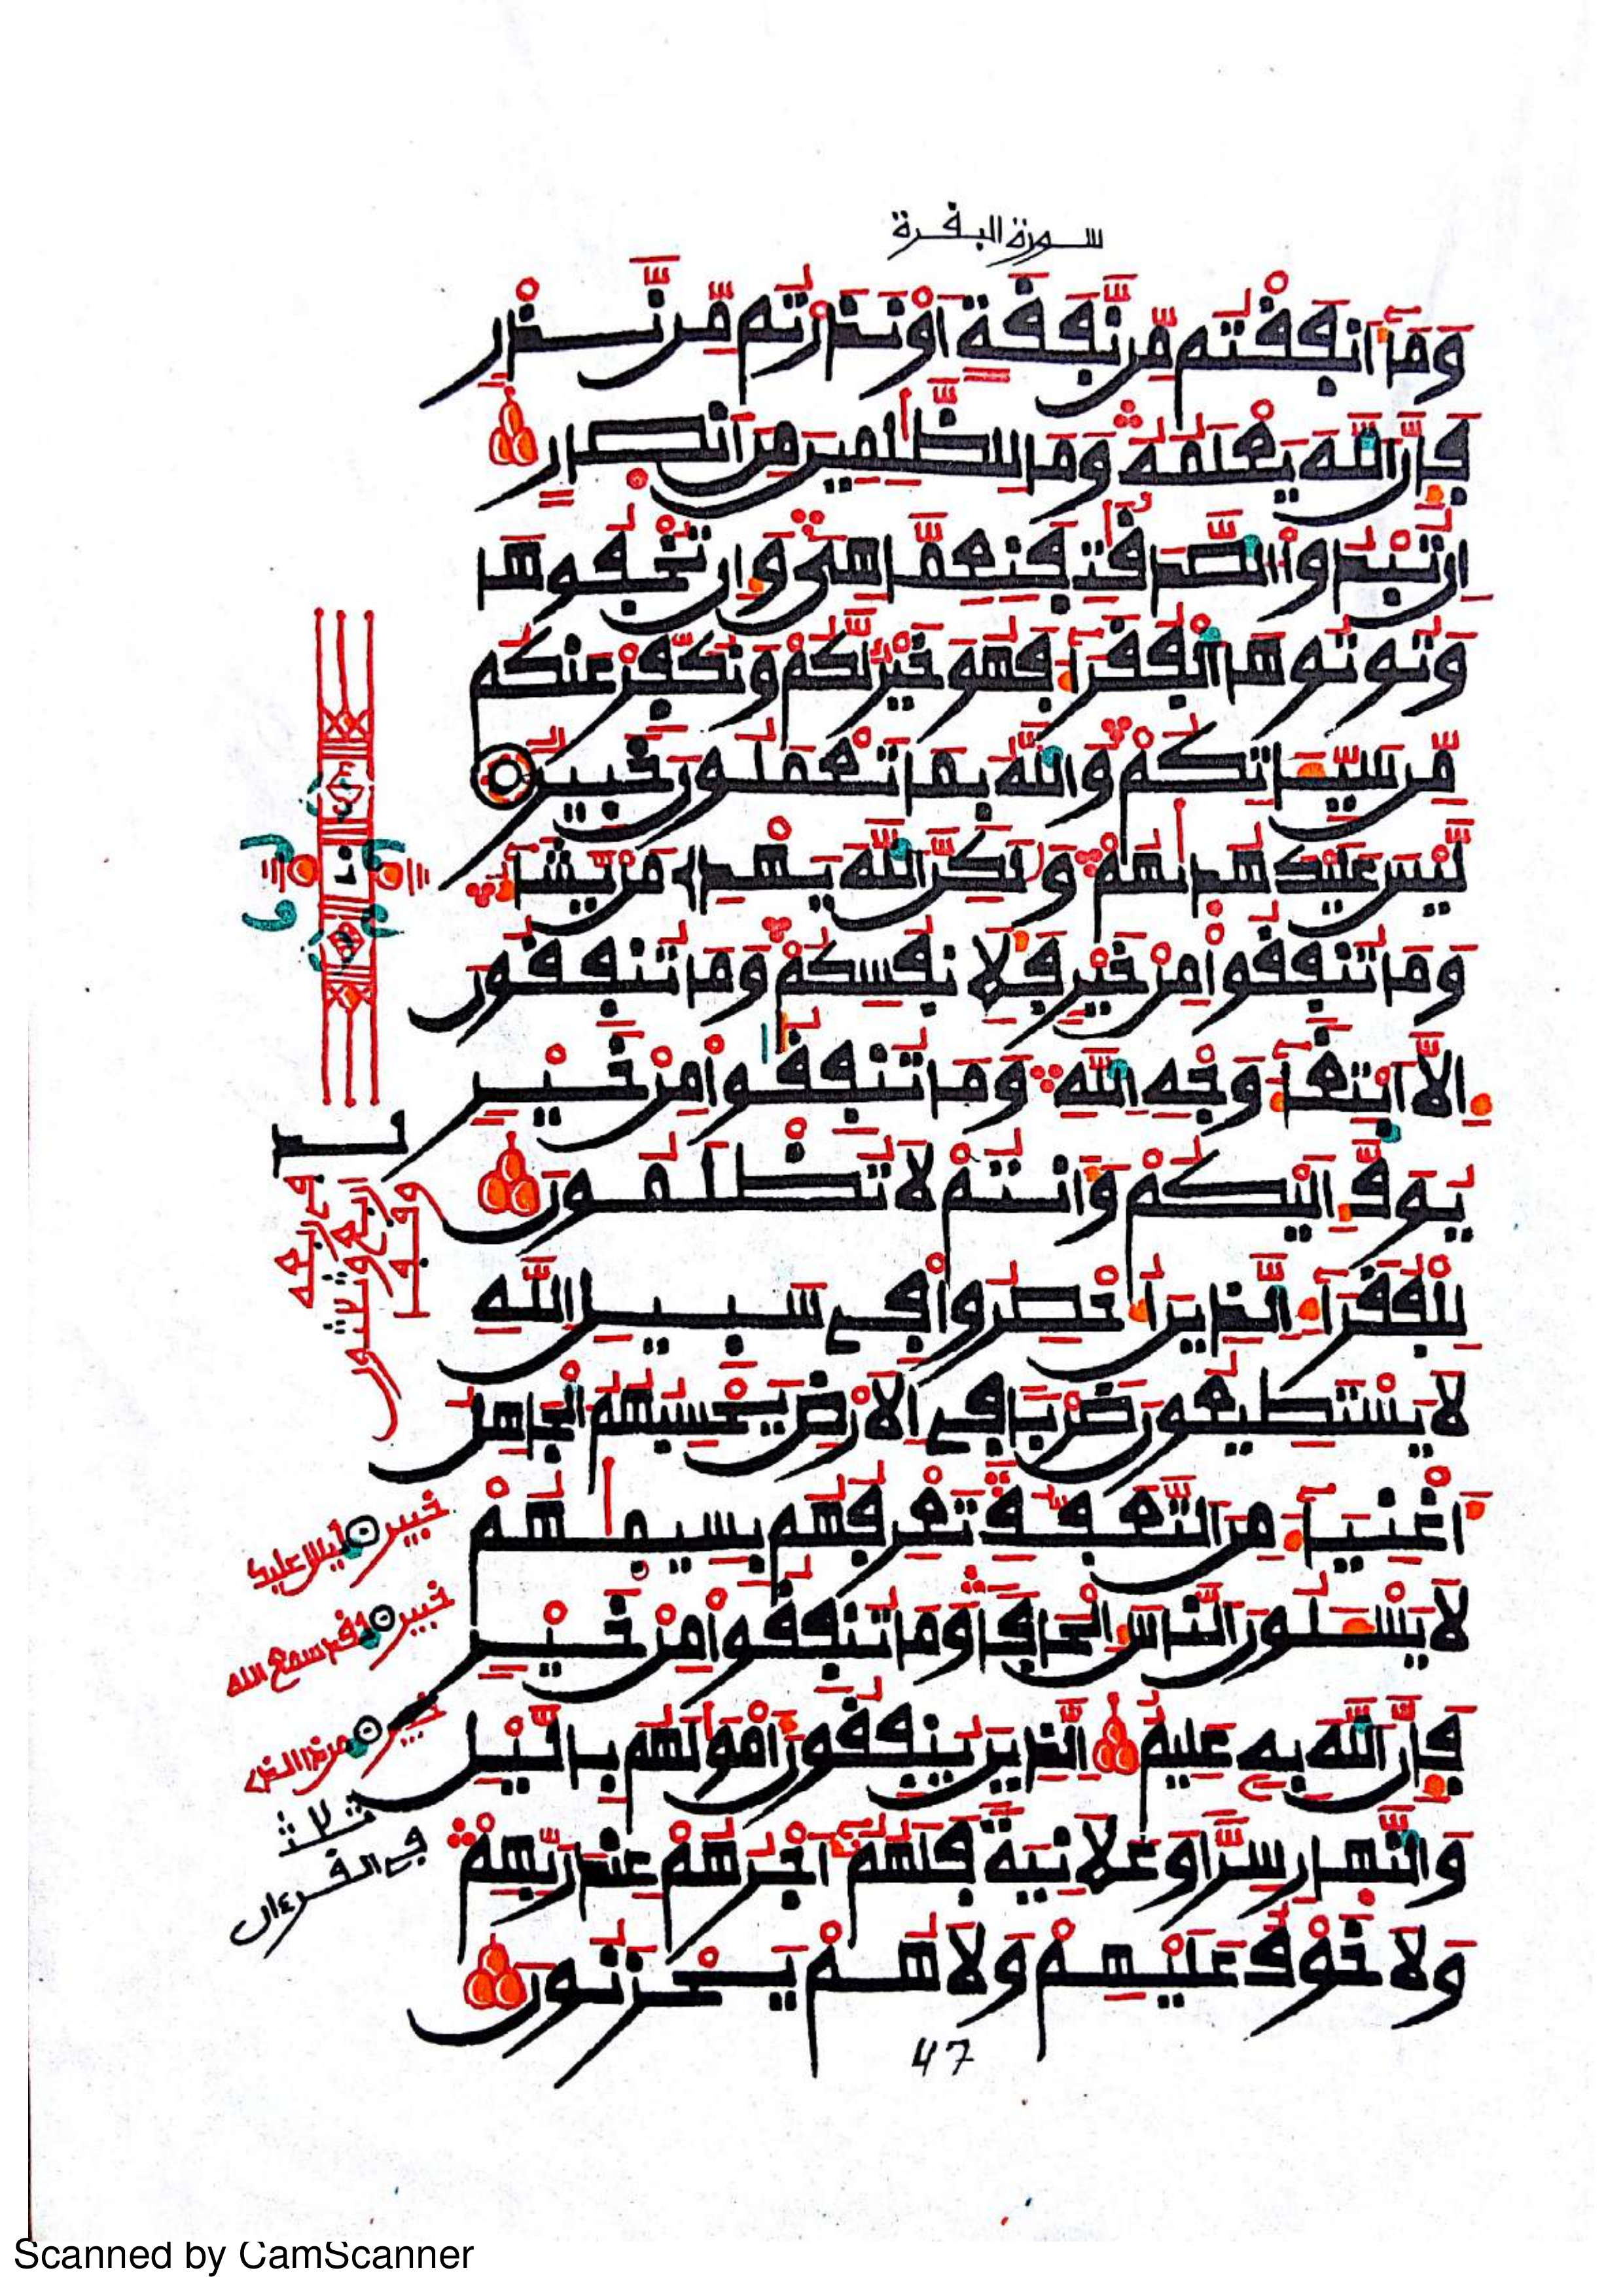 سورة البقرة
وَمَآ أَنفَقْتُم مِّن نَّفَقَةٍ أَوْ نَذَرْتُم مِّن نَّذْرٍ
فَإِنَّ ٱللَّهَ يَعْلَمُهُ وَمَا لِلظَّـٰلِمِينَ مِنْ أَنصَارٍ
إِن تُبْدُوا ٱلصَّدَقَـٰتِ فَنِعِمَّا هِىَ وَإِن تُخْفُوهَا
وَتُوتُوهَا ٱلْفُقَرَآءَ فَهُوَ خَيْرٌ لَّكُمْ وَنُكَفِّرْ عَنكُم
مِّن سَيِّـَٔاتِكُمْ وَٱللَّهُ بِمَا تَعْمَلُونَ خَبِيرٌ
لَّيْسَ عَلَيْكَ هُدَىٰهُمْ وَلَـٰكِنَّ ٱللَّهَ يَهْدِى مَنْ يَّشَآءُ
وَمَا تُنفِقُوا مِنْ خَيْرٍ فَلِأَنفُسِكُمْ وَمَا تُنفِقُونَ
إِلَّا ٱبْتِغَآءَ وَجْهِ ٱللَّهِ وَمَا تُنفِقُوا مِنْ خَيْرٍ
يُوَفَّ إِلَيْكُمْ وَأَنتُمْ لَا تُظْلَمُونَ
لِلْفُقَرَآءِ ٱلَّذِينَ أُحْصِرُوا فِى سَبِيلِ ٱللَّهِ
لَا يَسْتَطِيعُونَ ضَرْبًا فِى ٱلْأَرْضِ يَحْسِبُهُمُ ٱلْجَاهِلُ
أَغْنِيَآءَ مِنَ ٱلتَّعَفُّفِ تَعْرِفُهُم بِسِيمَـٰهُمْ
لَا يَسْـَٔلُونَ ٱلنَّاسَ إِلْحَافًا وَمَا تُنفِقُوا مِنْ خَيْرٍ
فَإِنَّ ٱللَّهَ بِهِ عَلِيمٌ ٱلَّذِينَ يُنفِقُونَ أَمْوَٰلَهُم بِٱلَّيْلِ
وَٱلنَّهَارِ سِرًّا وَعَلَانِيَةً فَلَهُمْ أَجْرُهُمْ عِندَ رَبِّهِمْ
وَلَا خَوْفٌ عَلَيْهِمْ وَلَا هُمْ يَحْزَنُونَ
خبير ليس عليك
خبير وقد سمع الله
ثلاث
في القرءان
47
Scanned by CamScanner